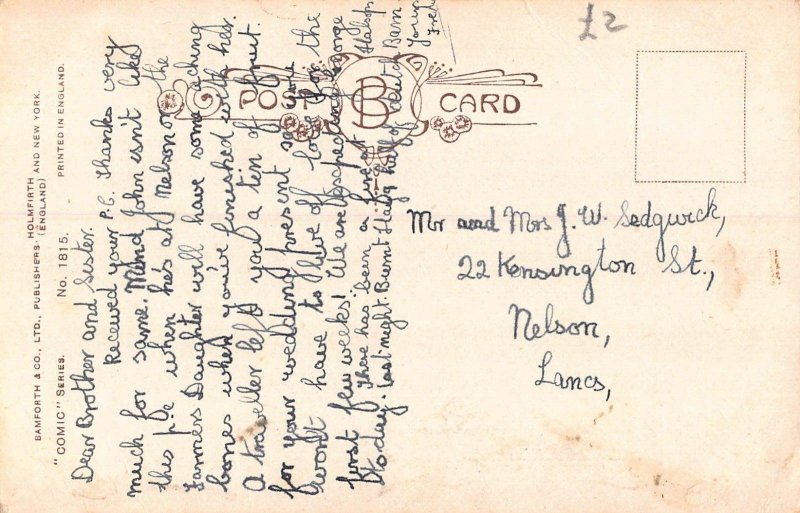 BAMFORTH & CO., LTD., PUBLISHERS. HOLMFIRTH (ENGLAND) AND NEW YORK.
"COMIC" SERIES. No. 1815. PRINTED IN ENGLAND.
Dear Brother and Sister.
Received your P.C. Thanks very
much for same. Mind John isn't like
this p.c when he's at Nelson or the
Farmers Daughter will have some aching
bones when you've finished with her.
A traveller left you a tin of fruit.
for your wedding present so
wont have to live off love for the
first few weeks! We are George
to day. There has been a fire at
last night. Burnt half of dutch Barn.
Yours
Fred
POST CARD
B
£2
Mr and Mrs J. W. Sedgwick,
22 Kensington St.,
Nelson,
Lancs,